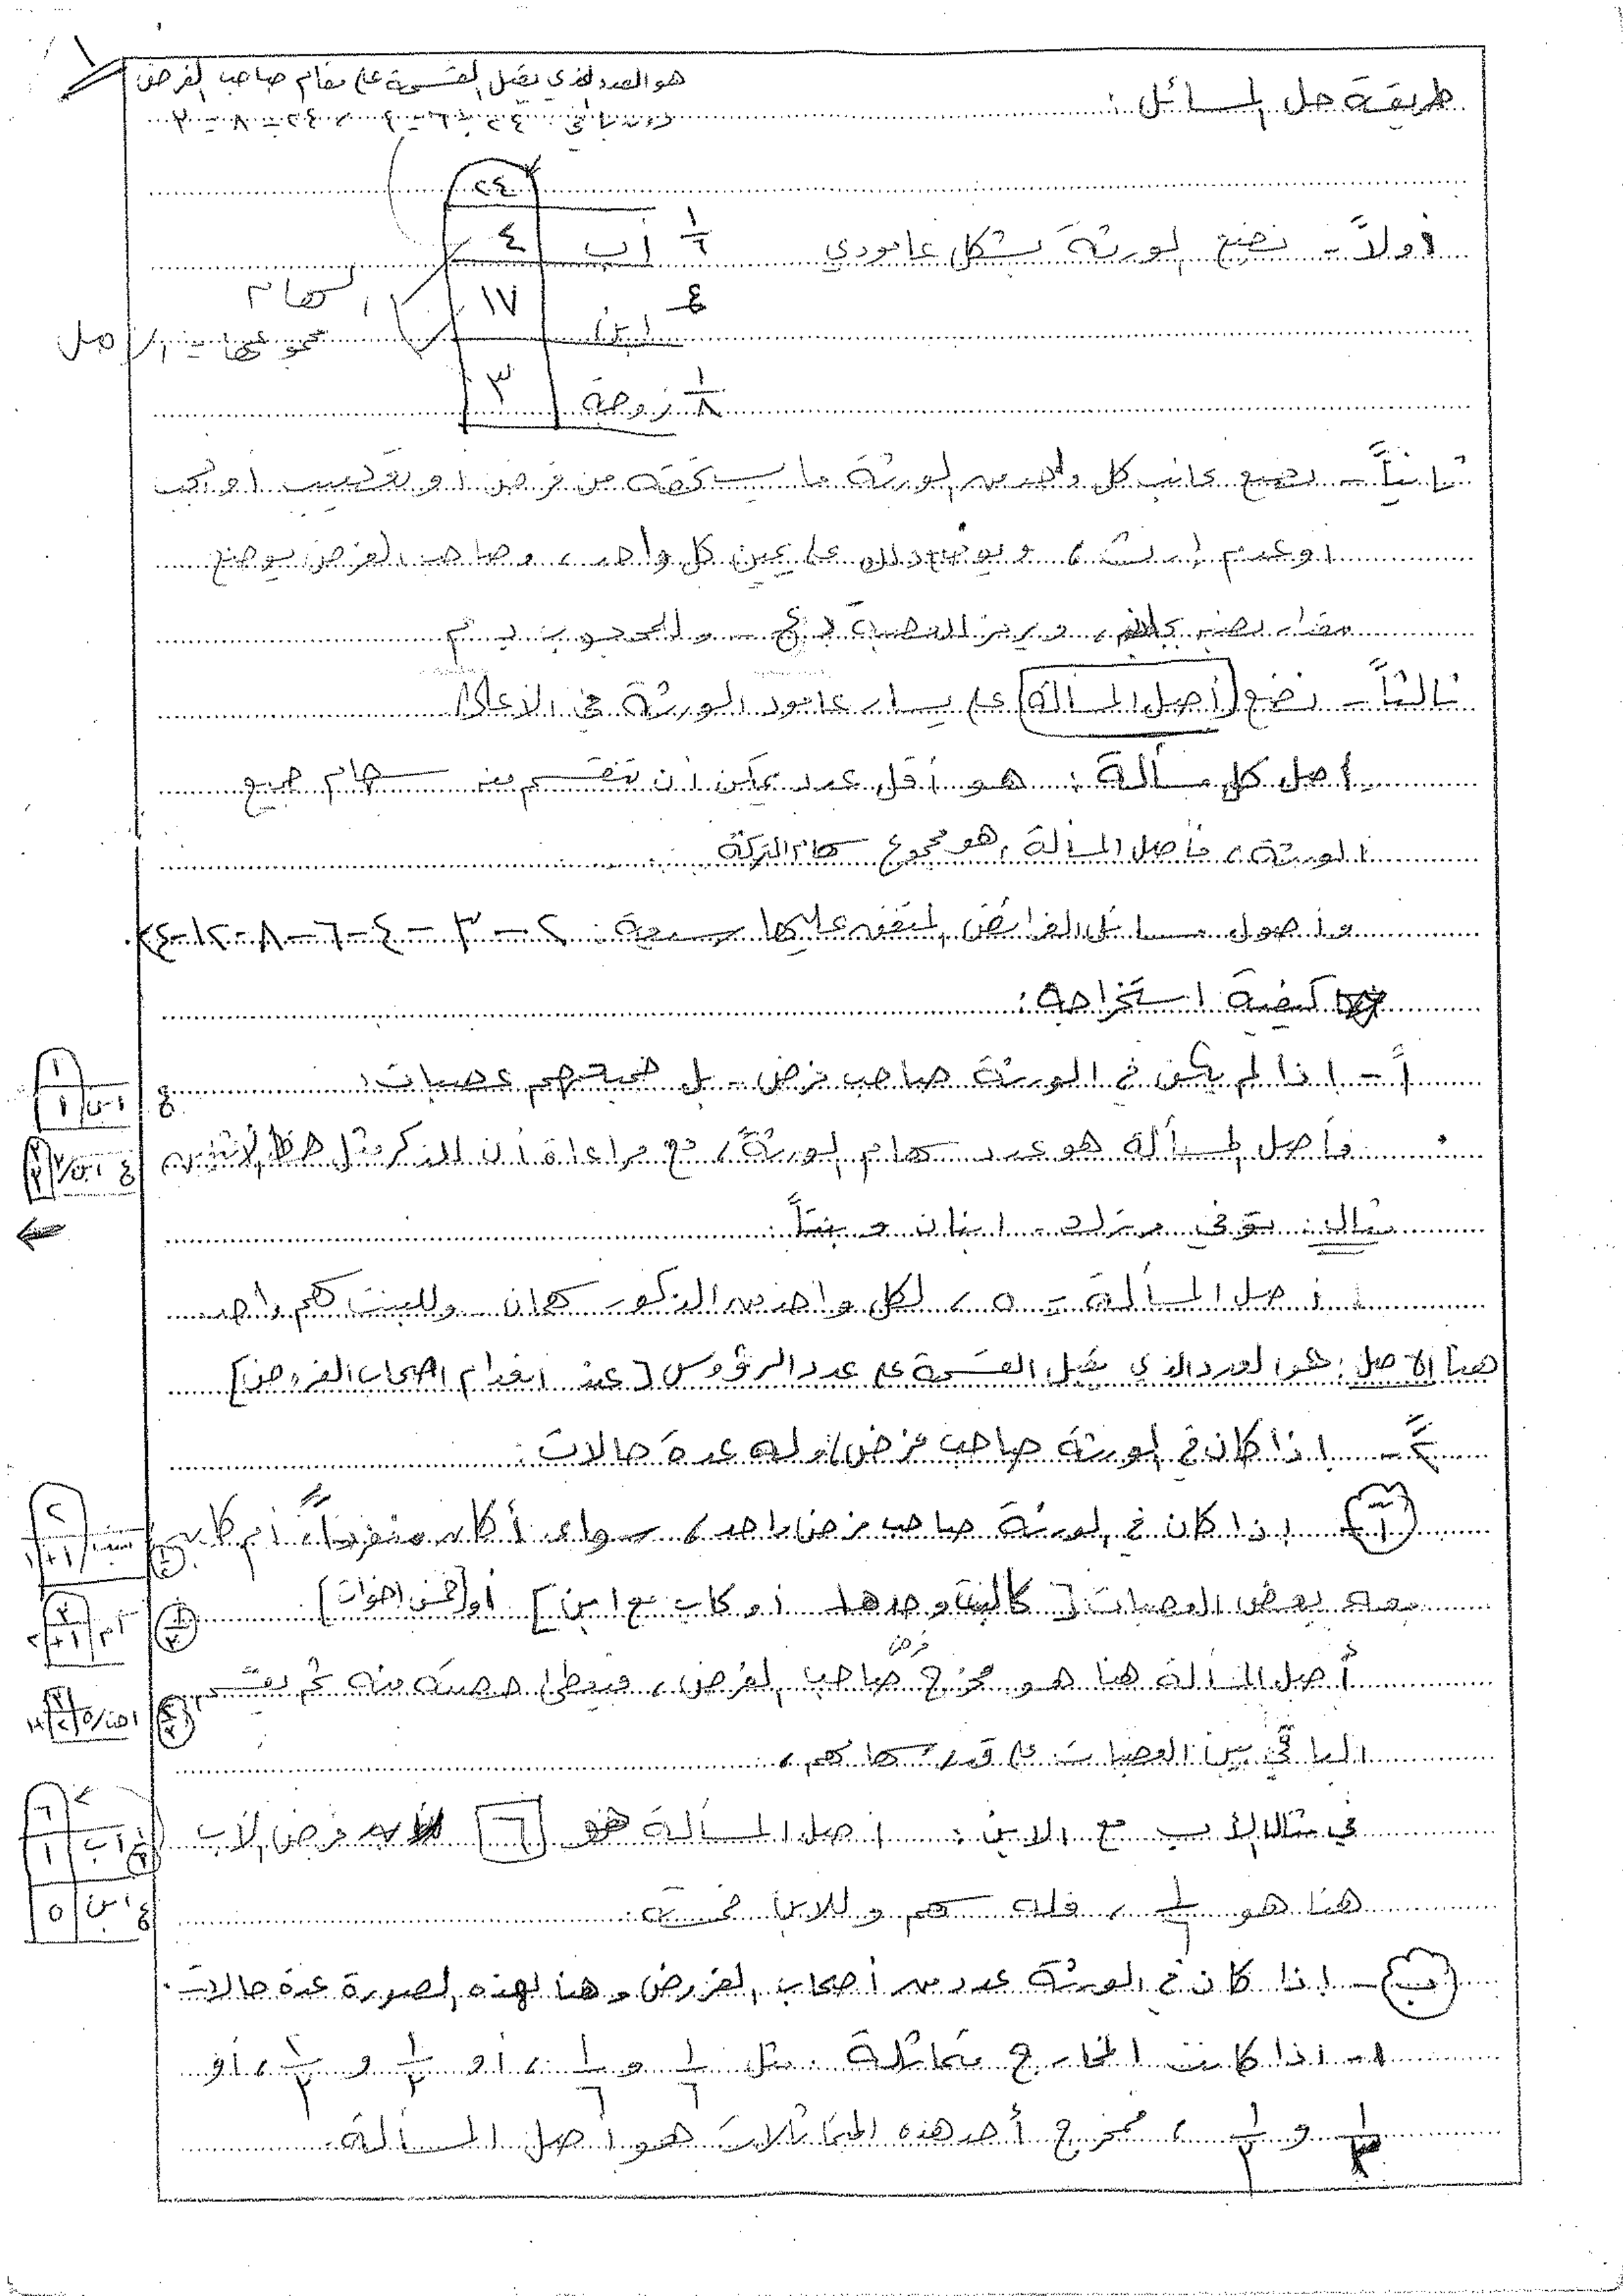 هو العدد الذي يقبل القسمة على مقام صاحب الفرض
طريقة حل المسائل :
٢٤
أولاً - نضع الورثة بشكل عامودي
١/٦ أب ٤
ع ابن ١٧
السهام
مجموعها = الأصل
١/٨ زوجة ٣
ثانياً - نضع بجانب كل واحد من الورثة ما يستحقه من فرض او تعصيب او حجب
او عدم إرث ، ويوضع ذلك على يمين كل واحد ، وصاحب الفرض يوضع
مقدار نصيبه ، ويرمز للعصبة بـ ع - والمحجوب بـ م
ثالثاً - نضع أصل المسألة على يسار عامود الورثة في الأعلى
أصل كل مسألة : هو أقل عدد يمكن أن تنقسم منه سهام جميع
الورثة ، فأصل المسألة هو مجموع سهام التركة
وأصول مسائل الفرائض المتفق عليها سبعة : ٢ - ٣ - ٤ - ٦ - ٨ - ١٢ - ٢٤
كيفية استخراجه :
أً - إذا لم يكن في الورثة صاحب فرض - بل جميعهم عصبات ،
١
ع ابن ١
فأصل المسألة هو عدد سهام الورثة ، مع مراعاة أن للذكر مثل حظ الأنثيين
مثال : توفي وترك ابنان و بنتاً :
أصل المسألة = ٥ ، لكل واحد من الذكور سهمان وللبنت سهم واحد
هنا الأصل : هو العدد الذي يقبل القسمة على عدد الرؤوس [عند انعدام اصحاب الفروض]
بً - إذا كان في الورثة صاحب فرض ، وله عدة حالات :
(أ) إذا كان في الورثة صاحب فرض واحد ، سواء أكان منفرداً ، أم كان
معه بعض العصبات [كالبنت وحدها أو كأب مع ابن] أو [خمس أخوات]
أصل المسألة هنا هو مخرج فرض صاحب الفرض ، فيعطى حصته منه ثم يقسم
الباقي بين العصبات على قدر سهامهم ،
في مثال الأب مع الابن : أصل المسألة هو ٦ لأن فرض الأب
٦
أب ١
ع ابن ٥
هنا هو ١/٦ ، فله سهم وللابن خمسة .
(ب) - إذا كان في الورثة عدد من أصحاب الفروض وهنا لهذه الصورة عدة حالات .
١- إذا كانت المخارج متماثلة مثل ١/٦ و ١/٦ ، أو ١/٣ و ٢/٣ ، أو
١/٢ و ١/٢ ، فمخرج أحد هذه المتماثلات هو أصل المسألة